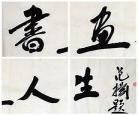 書畫
人生
范擴題